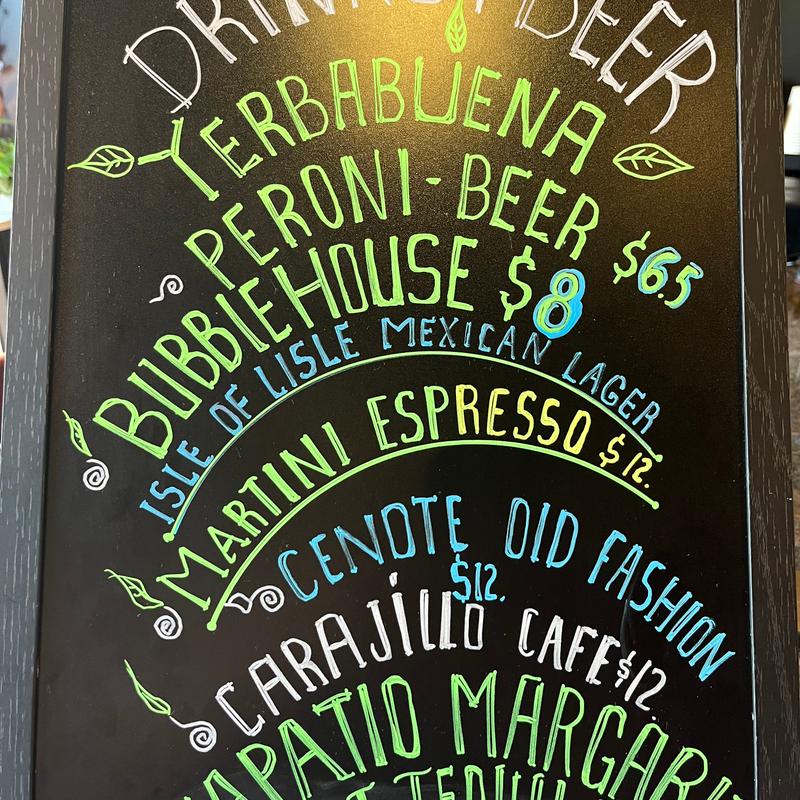 BEER
YERBABUENA
PERONI-BEER $6.5
BUBBLEHOUSE $8
ISLE OF LISLE MEXICAN LAGER
MARTINI ESPRESSO $12.
CENOTE OLD FASHION
$12.
CARAJILLO CAFE $12.